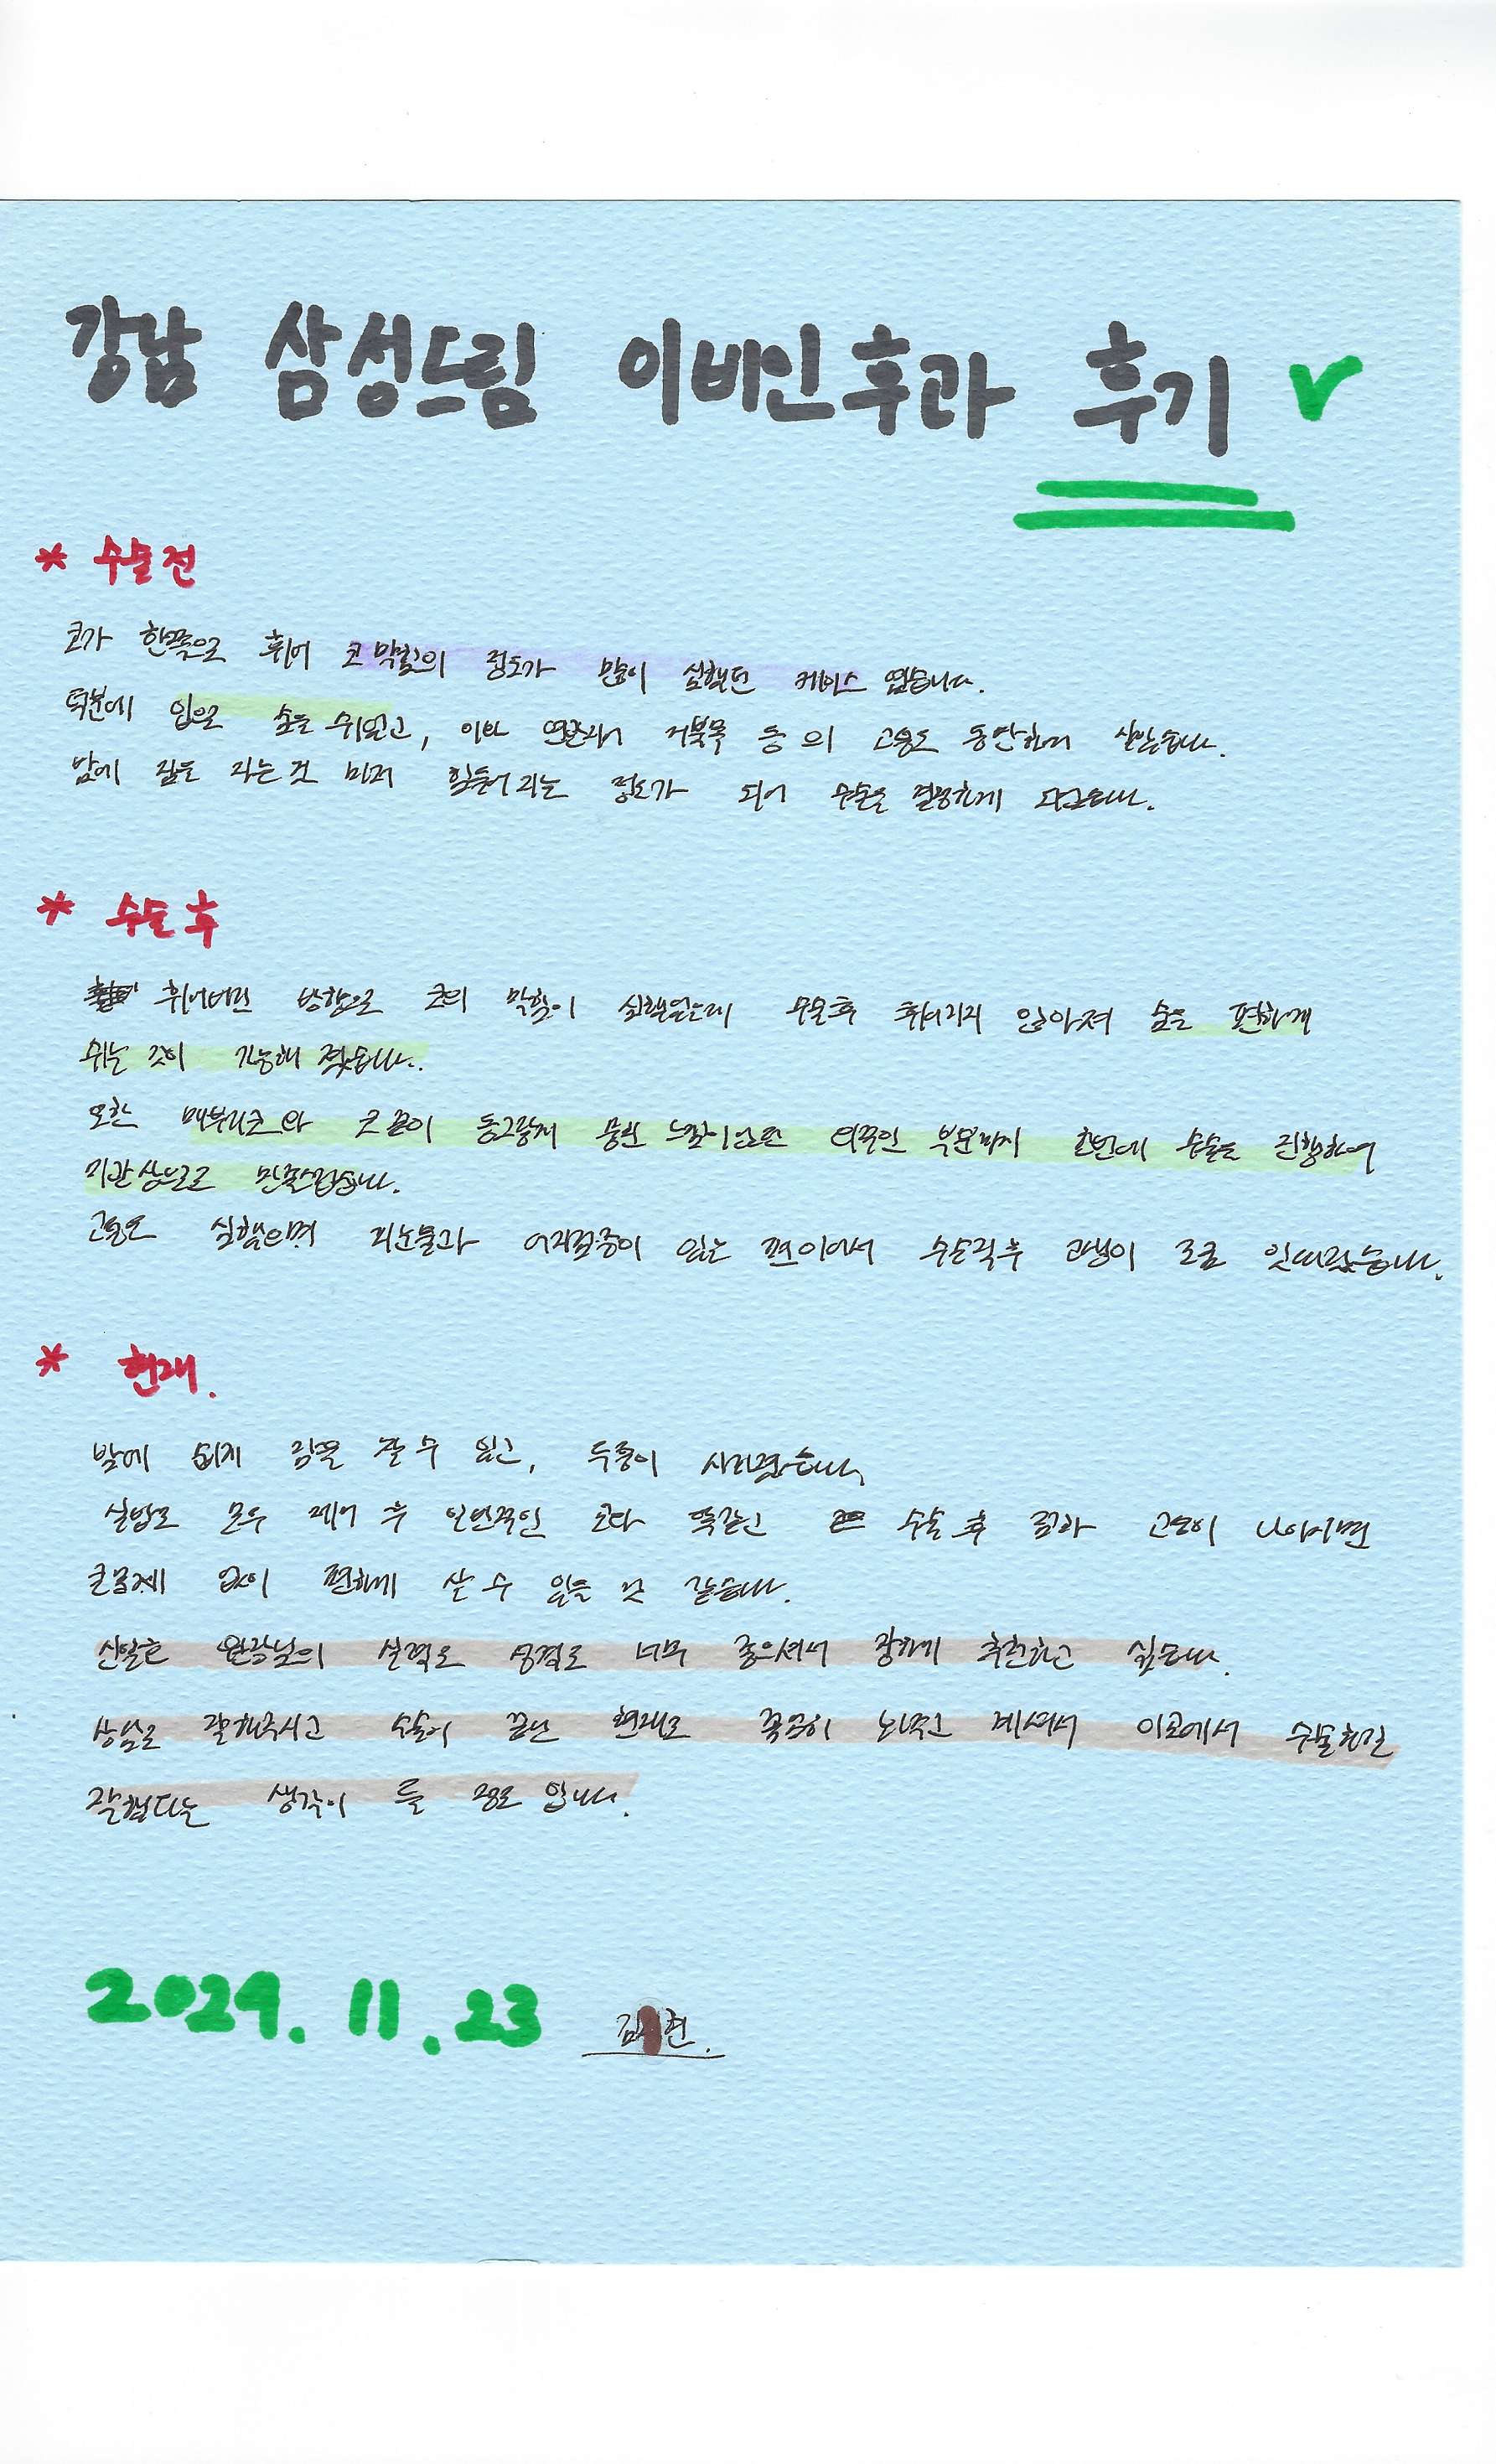 강남 삼성드림 이비인후과 후기
* 수술전
코가 한쪽으로 휘어 코막힘의 정도가 많이 심했던 케이스 였습니다.
덕분에 입으로 숨을 쉬었고, 이와 연관되어 거북목 등의 고통도 동반하며 살았습니다.
밤에 잠을 자는것 마저 힘들어지는 정도가 되어 수술을 결정하게 되었습니다.
* 수술후
휘어버린 방향으로 코의 막힘이 심했었는데 수술후 휘어지지 않아져 숨을 편하게
쉬는 것이 가능해 졌습니다.
또한 매부리코와 코 끝이 동그랗게 뭉친 느낌이었던 외적인 부분까지 한번에 수술을 진행하여
미관상으로도 만족스럽습니다.
고통도 심했으며 피눈물과 어지럼증이 있는 편이어서 수술직후 고생이 조금 잇따랐습니다.
* 현재.
밤에 쉽게 잠을 잘 수 있고, 두통이 사라졌습니다.
실밥도 모두 제거 후 일반적인 코와 똑같고 수술 후 점차 고통이 나아지면
큰문제 없이 편하게 살 수 있을 것 같습니다.
원장님의 실력도 성격도 너무 좋으셔서 강하게 추천하고 싶습니다.
상담도 잘해주시고 수술이 끝난 현재도 꼼꼼히 봐주고 계셔서 이곳에서 수술하길
잘했다는 생각이 들 정도 입니다.
2024. 11. 23